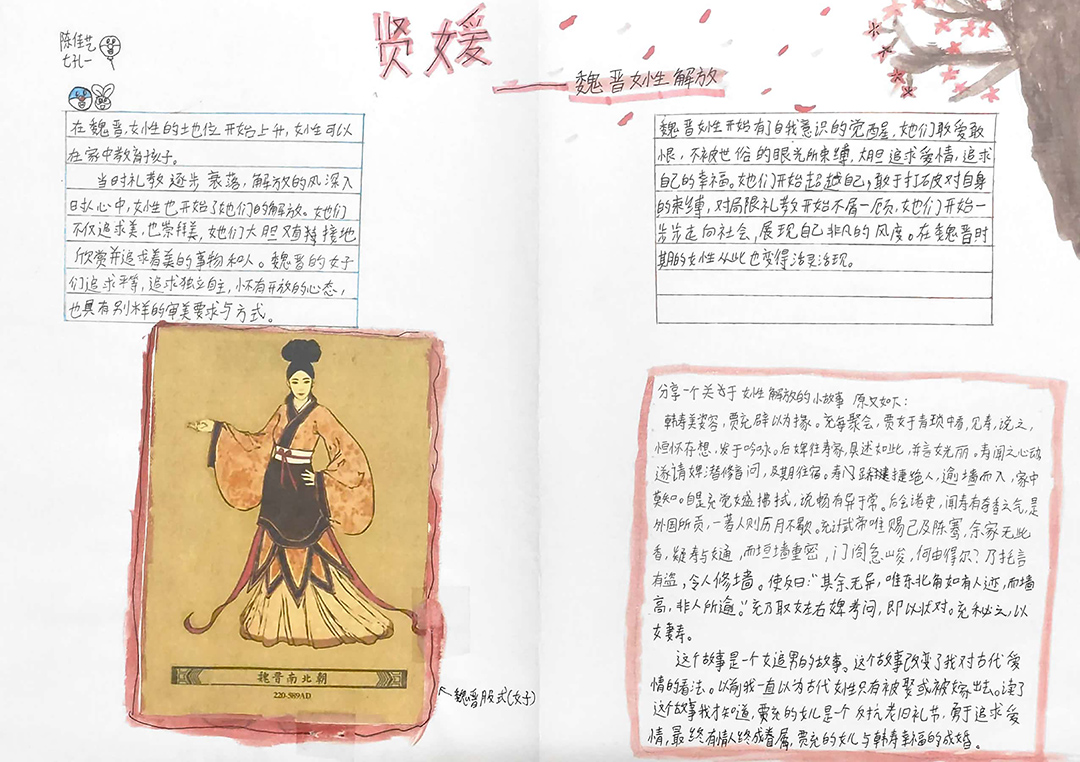 陈佳艺
七孔一
贤媛
——魏晋女性解放
在魏晋,女性的地位开始上升,女性可以
在家中教育孩子。
当时礼教逐步衰落,解放的风深入
时人心中,女性也开始了她们的解放。她们
不仅追求美,也崇拜美,她们大胆又直接地
欣赏并追求着美的事物和人。魏晋的女子
们追求平等,追求独立自主,怀有开放的心态,
也具有别样的审美要求与方式。
魏晋南北朝
220-589AD
魏晋服式(女子)
魏晋女性开始有了自我意识的觉醒,她们敢爱敢
恨,不被世俗的眼光所束缚,大胆追求爱情,追求
自己的幸福。她们开始超越自己,敢于打破对自身
的束缚,对局限礼教开始不屑一顾,她们开始一
步步走向社会,展现自己非凡的风度。在魏晋时
期的女性从此也变得活灵活现。
分享一个关于女性解放的小故事 原文如下:
韩寿美姿容,贾充辟以为掾。充每聚会,贾女于青琐中看,见寿,说之,
恒怀存想,发于吟咏。后婢往寿家,具述如此,并言女光丽。寿闻之心动,
遂请婢潜修音问,及期往宿。寿捷绝人,逾墙而入,家中
莫知。自是充觉女盛拂拭,说畅有异于常。后会诸吏,闻寿有奇香之气,是
外国所贡,一著人则历月不歇。充计武帝唯赐己及陈骞,余家无此
香,疑寿与女通,而垣墙重密,门阁急峻,何由得尔?乃托言
有盗,令人修墙。使反曰:“其余无异,唯东北角如有人迹,而墙
高,非人所逾。”充乃取女左右婢考问,即以状对。充秘之,以
女妻寿。
这个故事是一个女追男的故事。这个故事改变了我对古代爱
情的看法。以前我一直以为古代女性只有被娶或被嫁出去。读了
这个故事我才知道,贾充的女儿是一个反抗老旧礼节,勇于追求爱
情,最终有情人终成眷属,贾充的女儿与韩寿幸福的成婚。